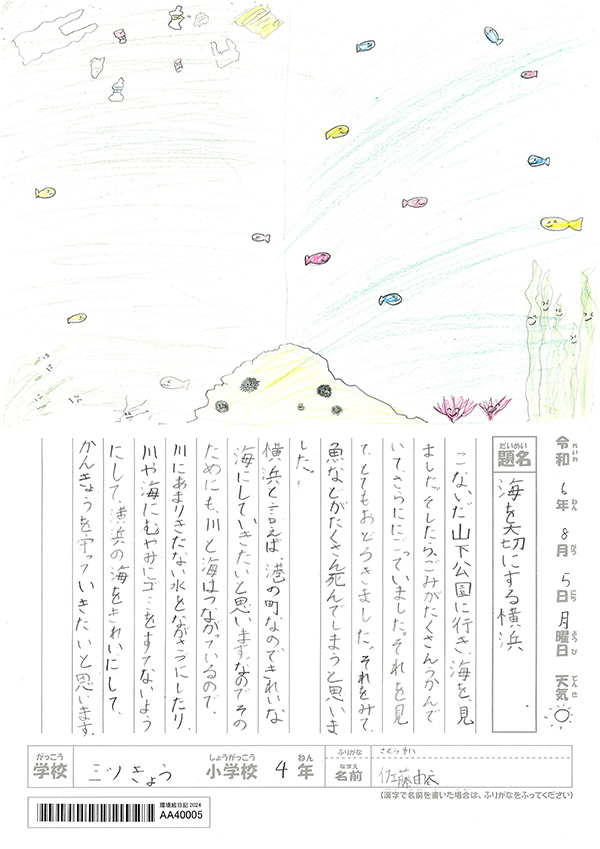 令和 6年 8月 5日 月曜日 天気
れいわ ねん がつ にち ようび てんき
だいめい
題名 海を大切にする横浜
こないだ山下公園に行き、海を見
ました。そしたら、ごみがたくさんうかんで
いて、さらににごっていました。それを見
て、とてもおどろきました。それをみて、
魚などがたくさん死んでしまうと思いま
した。
横浜と言えば、港の町なのできれいな
海にしていきたいと思います。なのでその
ためにも、川と海はつながっているので、
川にあまりきたない水をながさづにしたり、
川や海にむやみにゴミをすてないよう
にして、横浜の海をきれいにして、
かんきょうを守っていきたいと思います。
がっこう しょうがっこう ねん
学校 三ツきょう 小学校 4年
ふりがな さとう
なまえ
名前 佐藤由衣
(漢字で名前を書いた場合は、ふりがなをふってください)
環境絵日記 2024
AA40005